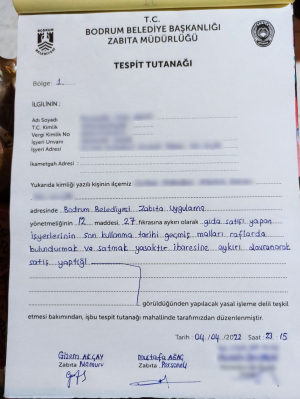 T.C.
BODRUM BELEDİYE BAŞKANLIĞI
ZABITA MÜDÜRLÜĞÜ
TESPİT TUTANAĞI
Bölge: 1
İLGİLİNİN :
Adı Soyadı :
T.C. Kimlik :
Vergi Kimlik No :
İşyeri Unvanı :
İşyeri Adresi :
İkametgah Adresi :
Yukarıda kimliği yazılı kişinin ilçemiz
adresinde Bodrum Belediyesi Zabıta Uygulama
yönetmeliğinin 12 maddesi 27 fıkrasına aykırı olarak gıda satışı yapan
işyerlerinin son kullanma tarihi geçmiş malları raflarda
bulundurmak ve satmak yasaktır ibaresine aykırı davranarak
satış yaptığı
görüldüğünden yapılacak yasal işleme delil teşkil
etmesi bakımından, işbu tespit tutanağı mahallinde tarafımızdan düzenlenmiştir.
Tarih : 04/04/2022 Saat : 15
Gizem AKÇAY Mustafa
Zabıta Memuru Zabıta Personeli